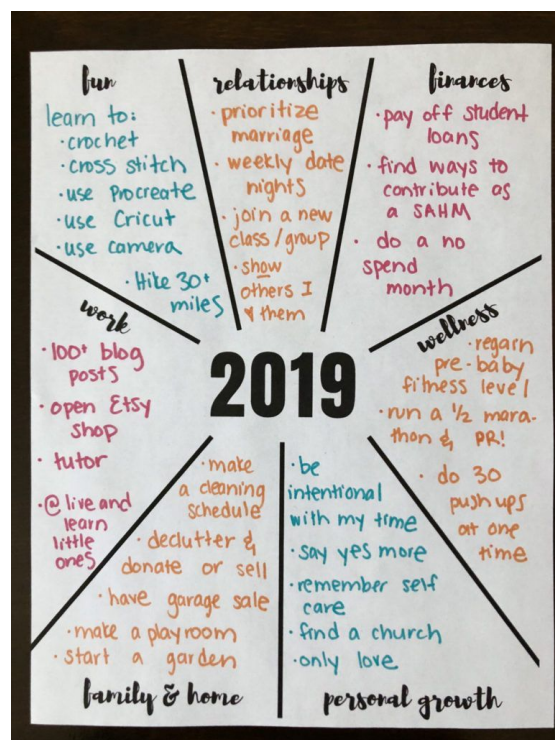 fun
learn to:
· crochet
· cross stitch
· use Procreate
· use Cricut
· use camera
· Hike 30+
miles
relationships
· prioritize
marriage
· weekly date
nights
· join a new
class/group
· show
others I
♥ them
finances
· pay off student
loans
· find ways to
contribute as
a SAHM
· do a no
spend
month
work
· 100+ blog
posts
· open Etsy
shop
· tutor
· @ live and
learn
little
ones
2019
wellness
· regain
pre-baby
fitness level
· run a 1/2 mara-
thon & PR!
· do 30
push ups
at one
time
· make
a cleaning
schedule
· declutter &
donate or sell
· have garage sale
· make a playroom
· start a garden
family & home
· be
intentional
with my time
· say yes more
· remember self
care
· find a church
· only love
personal growth